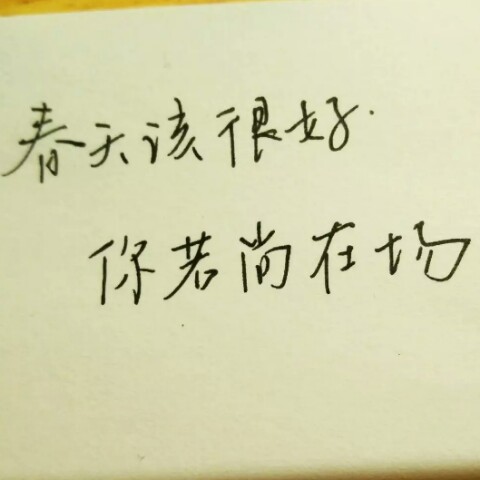 春天该很好.
你若尚在场